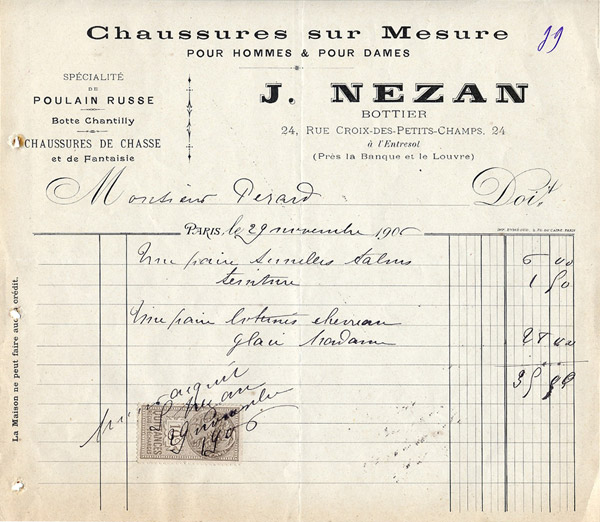 Chaussures sur Mesure
POUR HOMMES & POUR DAMES
SPÉCIALITÉ
DE
POULAIN RUSSE
Botte Chantilly
CHAUSSURES DE CHASSE
et de Fantaisie
J. NEZAN
BOTTIER
24, RUE CROIX-DES-PETITS-CHAMPS, 24
à l'Entresol
(Près la Banque et le Louvre)
Monsieur Perard Doit
PARIS, le 29 novembre 1906
Une paire semelles talons 6 00
teinture 1 50
Une paire bottines chevreau
glacé Madame 28 00
35 50
Pour acquit
Nezan
29 novembre
1906
QUITTANCES
La Maison ne peut faire aucun crédit.